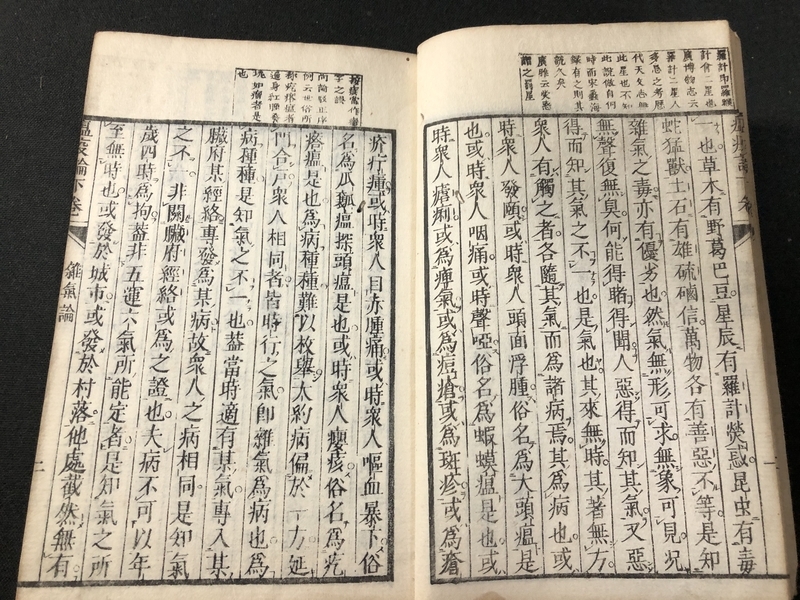 羅計即羅睺
計會二星也
廣博物志云
羅計二星人
多忌之考歷
代天文志
此星也不知
此說倣自何
時而宋
錄有之則其
說久矣
廣雅云熒惑
謂之罰星
瘟疫論下卷
一也草木有野葛巴豆星辰有羅計熒惑昆虫有毒
蛇猛獸土石有雄硫硇信萬物各有善惡不等是知
雜氣之毒亦有優劣也然氣無形可求無象可見况
無聲復無臭何能得睹得聞人惡得而知其氣又惡
得而知其氣之不一也是氣也其來無時其著無方
衆人有觸之者各隨其氣而為諸病焉其為病也或
時衆人發頤或時衆人頭面浮腫俗名為大頭瘟是
也或時衆人咽痛或時聲啞俗名為蝦蟆瘟是也或
時衆人瘧痢或為痺氣或為痘瘡或為斑疹或為瘡
字之證
疥疔瘇或時衆人目赤腫痛或時衆人嘔血暴下俗
名為瓜瓤瘟探頭瘟是也或時衆人癭痎俗名為疙
瘩瘟是也為病種種難以枚舉大約病偏於一方延
門合戶衆人相同者皆時行之氣即雜氣為病也為
病種種是知氣之不一也蓋當時適有某氣專入某
臟府某經絡專發為某病故衆人之病相同是知氣
之不一非關臟府經絡或為之證也夫病不可以年
歲四時為拘蓋非五運六氣所能定者是知氣之所
至無時也或發於城市或發於村落他處截然無有
瘟疫論下卷
雜氣論
二